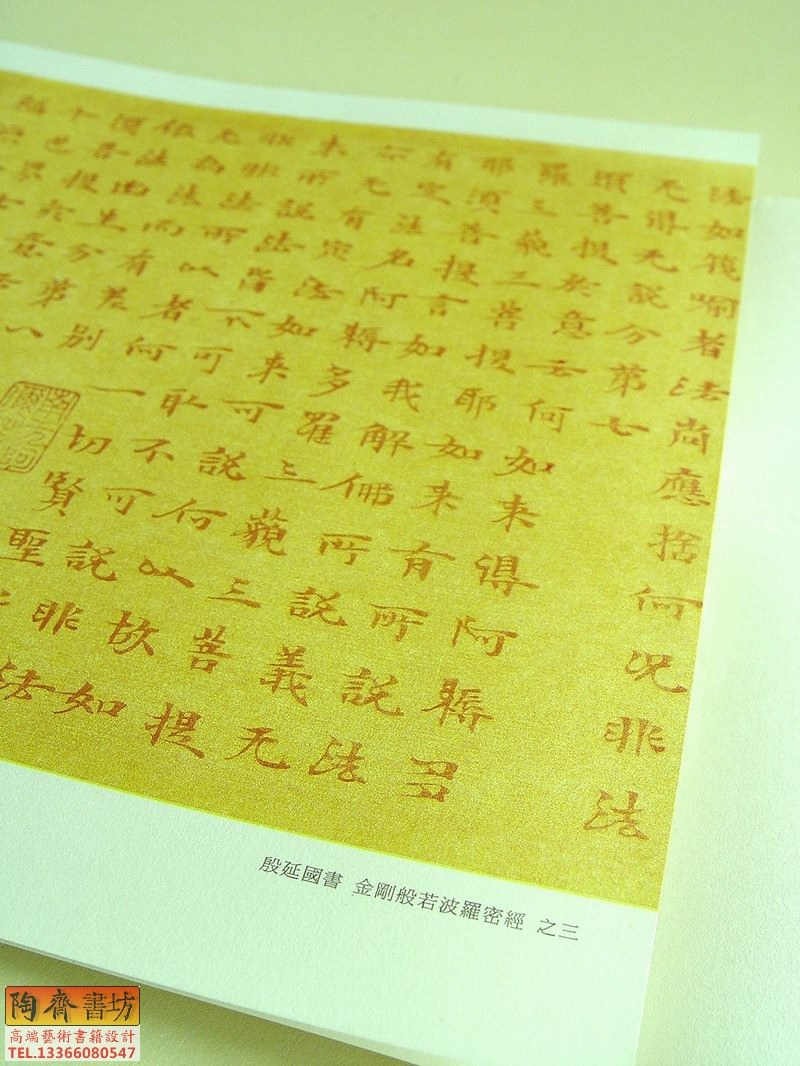 法如筏喻者法尚應捨何況非法
无得无說分第七
須菩提於意云何如來得阿耨多
羅三藐三菩提耶如來有所說法
耶須菩提言如我解佛所說義无
有定法名阿耨多羅三藐三菩提
亦无有定法如來可說何以故如
來所說法皆不可取不可說非法
非非法所以者何一切賢聖
无為法而有差別
依法出生分第八
菩提於意
殷延國書 金剛般若波羅密經 之三
陶齋書坊
高端藝術書籍設計
TEL.13366080547